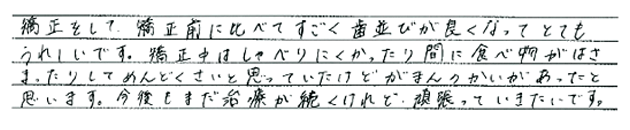 矯正をして、矯正前に比べてすごく歯並びが良くなってとても
うれしいです。矯正中はしゃべりにくかったり間に食べ物がはさ
まったりしてめんどくさいと思っていたけどがまんのかいがあったと
思います。今後もまだ治療が続くけれど、頑張っていきたいです。